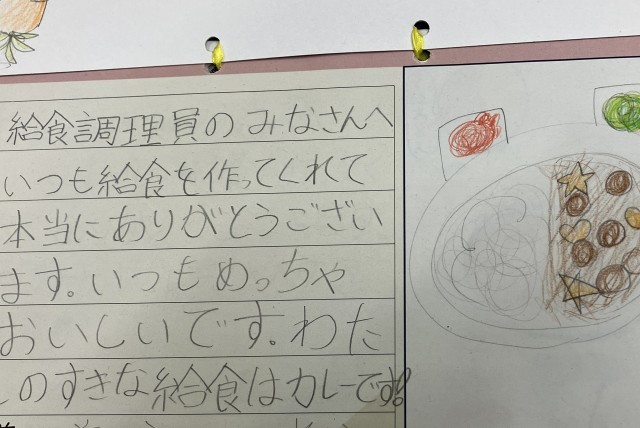 給食調理員のみなさんへ
いつも給食を作ってくれて
本当にありがとうござい
ます。いつもめっちゃ
おいしいです。わた
しのすきな給食はカレーです!